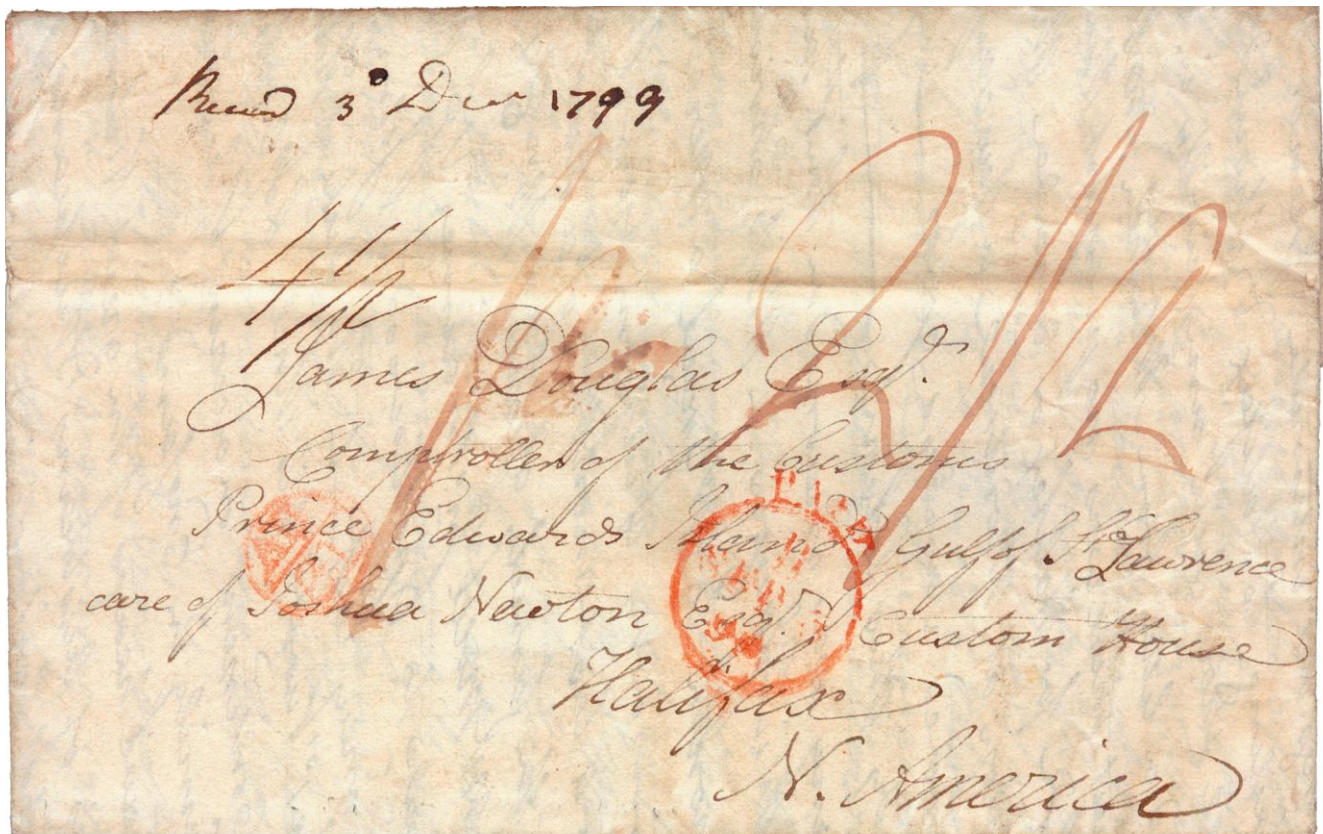 Recced 3d Decr 1799
4/
James Douglas Esqr.
Comptroller of the Customs
Prince Edwards Island Gulf of St Lawrence
care of Joshua Newton Esqr. Custom House
Halifax
N. America
PAID